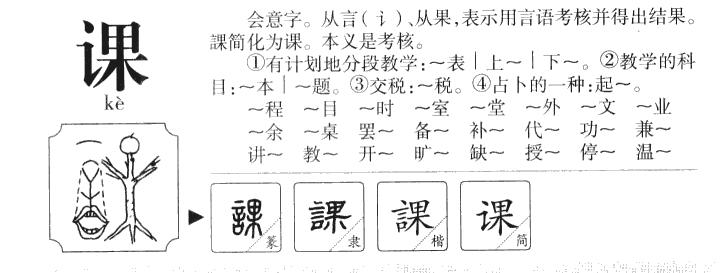 课
kè
会意字。从言(讠)、从果,表示用言语考核并得出结果。
課简化为课。本义是考核。
①有计划地分段教学:～表｜上～｜下～。②教学的科
目:～本｜～题。③交税:～税。④占卜的一种:起～。
～程 ～目 ～时 ～室 ～堂 ～外 ～文 ～业
～余 ～桌 罢～ 备～ 补～ 代～ 功～ 兼～
讲～ 教～ 开～ 旷～ 缺～ 授～ 停～ 温～
課 篆 課 隶 課 楷 课 简